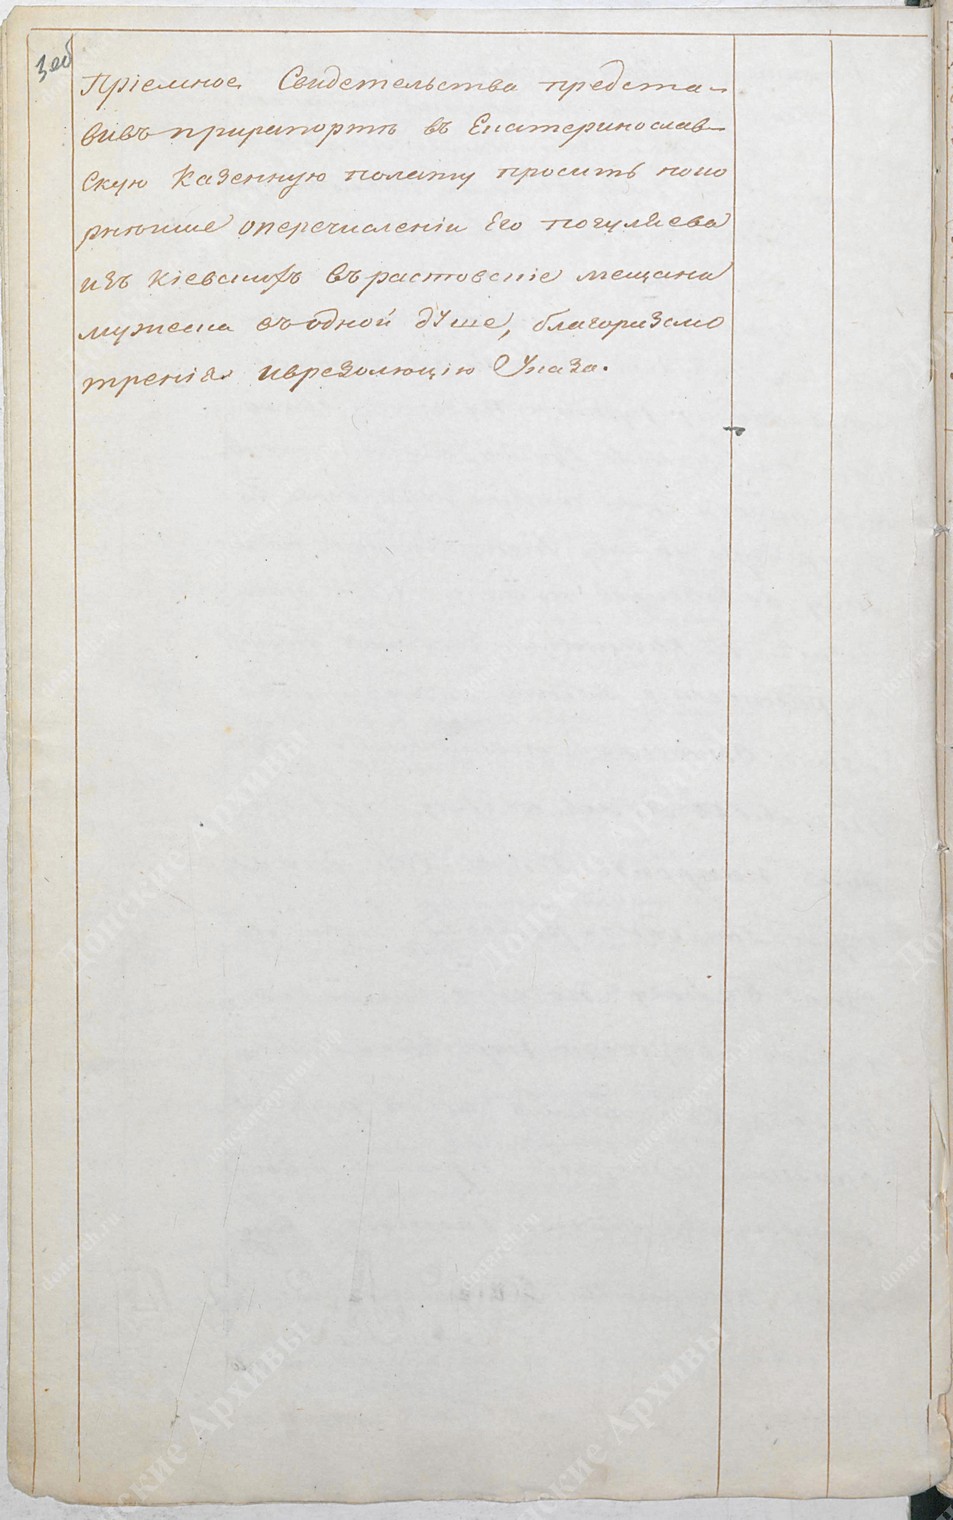 3 об
Пріемное Свидетельства предста-
вивъ прирапортѣ въ Екатеринослав-
скую Казенную полату просить поко
рнѣише оперечисленіи Его погуляева
изъ Кіевскихъ въ растовскіе мещани
мужеска въ одной дУше, благоразсмо
тренія иврезолюцію Указа.
Донские Архивы
donarch.ru